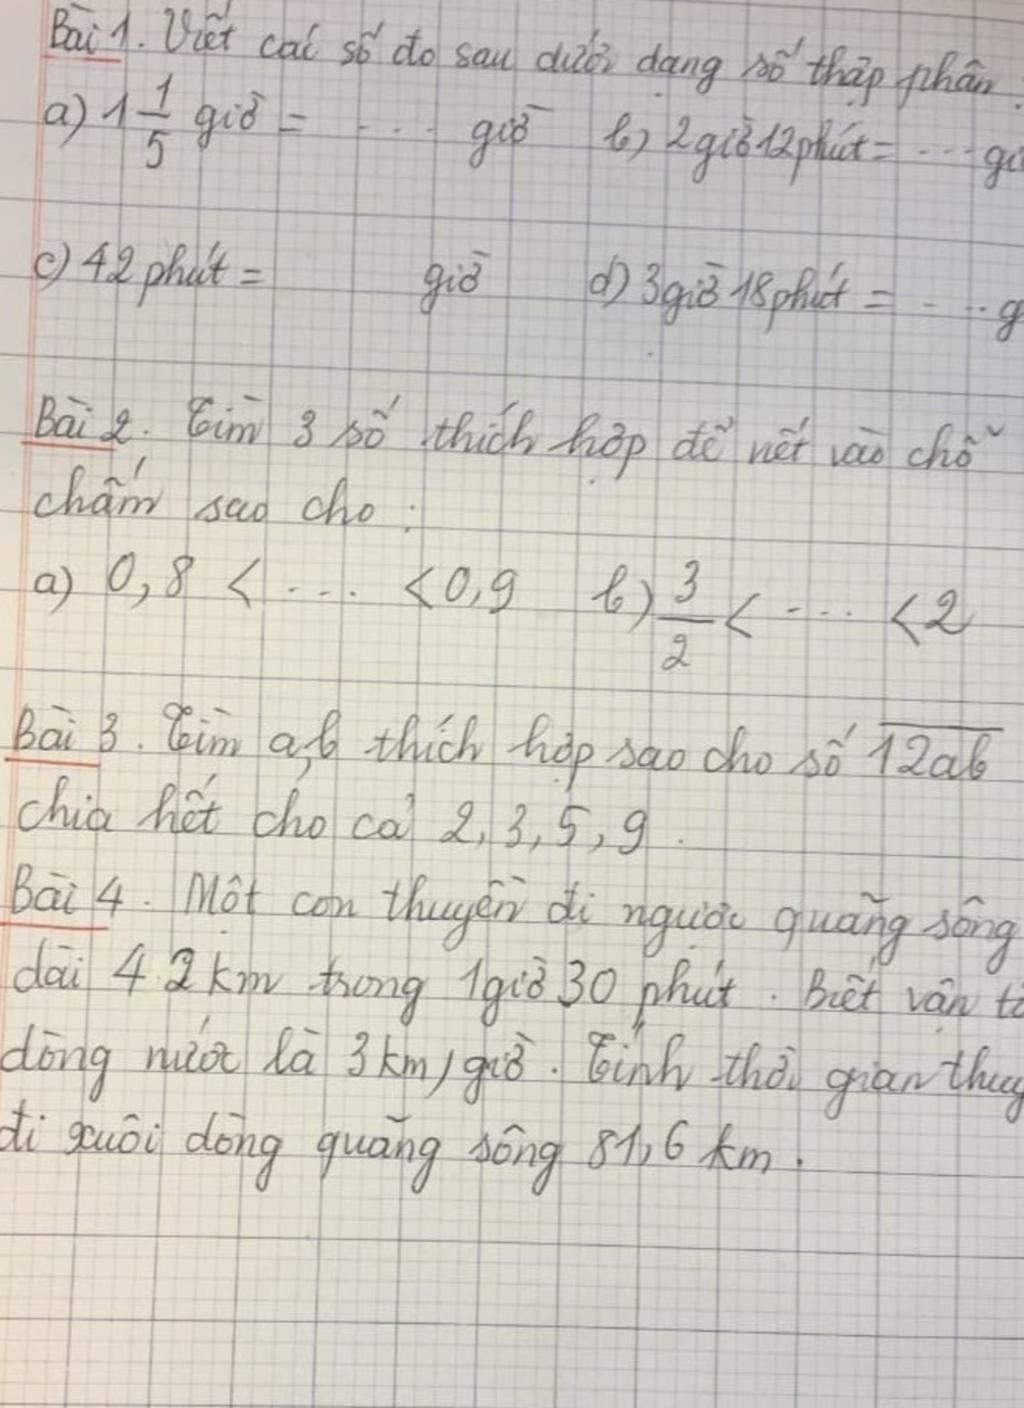 Bài 1. Viết các số đo sau dưới dạng số thập phân :
a) 1 1/5 giờ = ... giờ b) 2giờ12phút = ... gi
c) 42 phút = giờ d) 3giờ 18phút = ... g
Bài 2. Tìm 3 số thích hợp để viết vào chỗ
chấm sao cho :
a) 0,8 < ... < 0,9 b) 3/2 < ... < 2
Bài 3. Tìm a,b thích hợp sao cho số 12ab
chia hết cho cả 2, 3, 5, 9.
Bài 4. Một con thuyền đi ngược quãng sông
dài 42 km trong 1giờ 30 phút. Biết vận tố
dòng nước là 3 km/giờ. Tính thời gian thuy
đi xuôi dòng quãng sông 81,6 km.